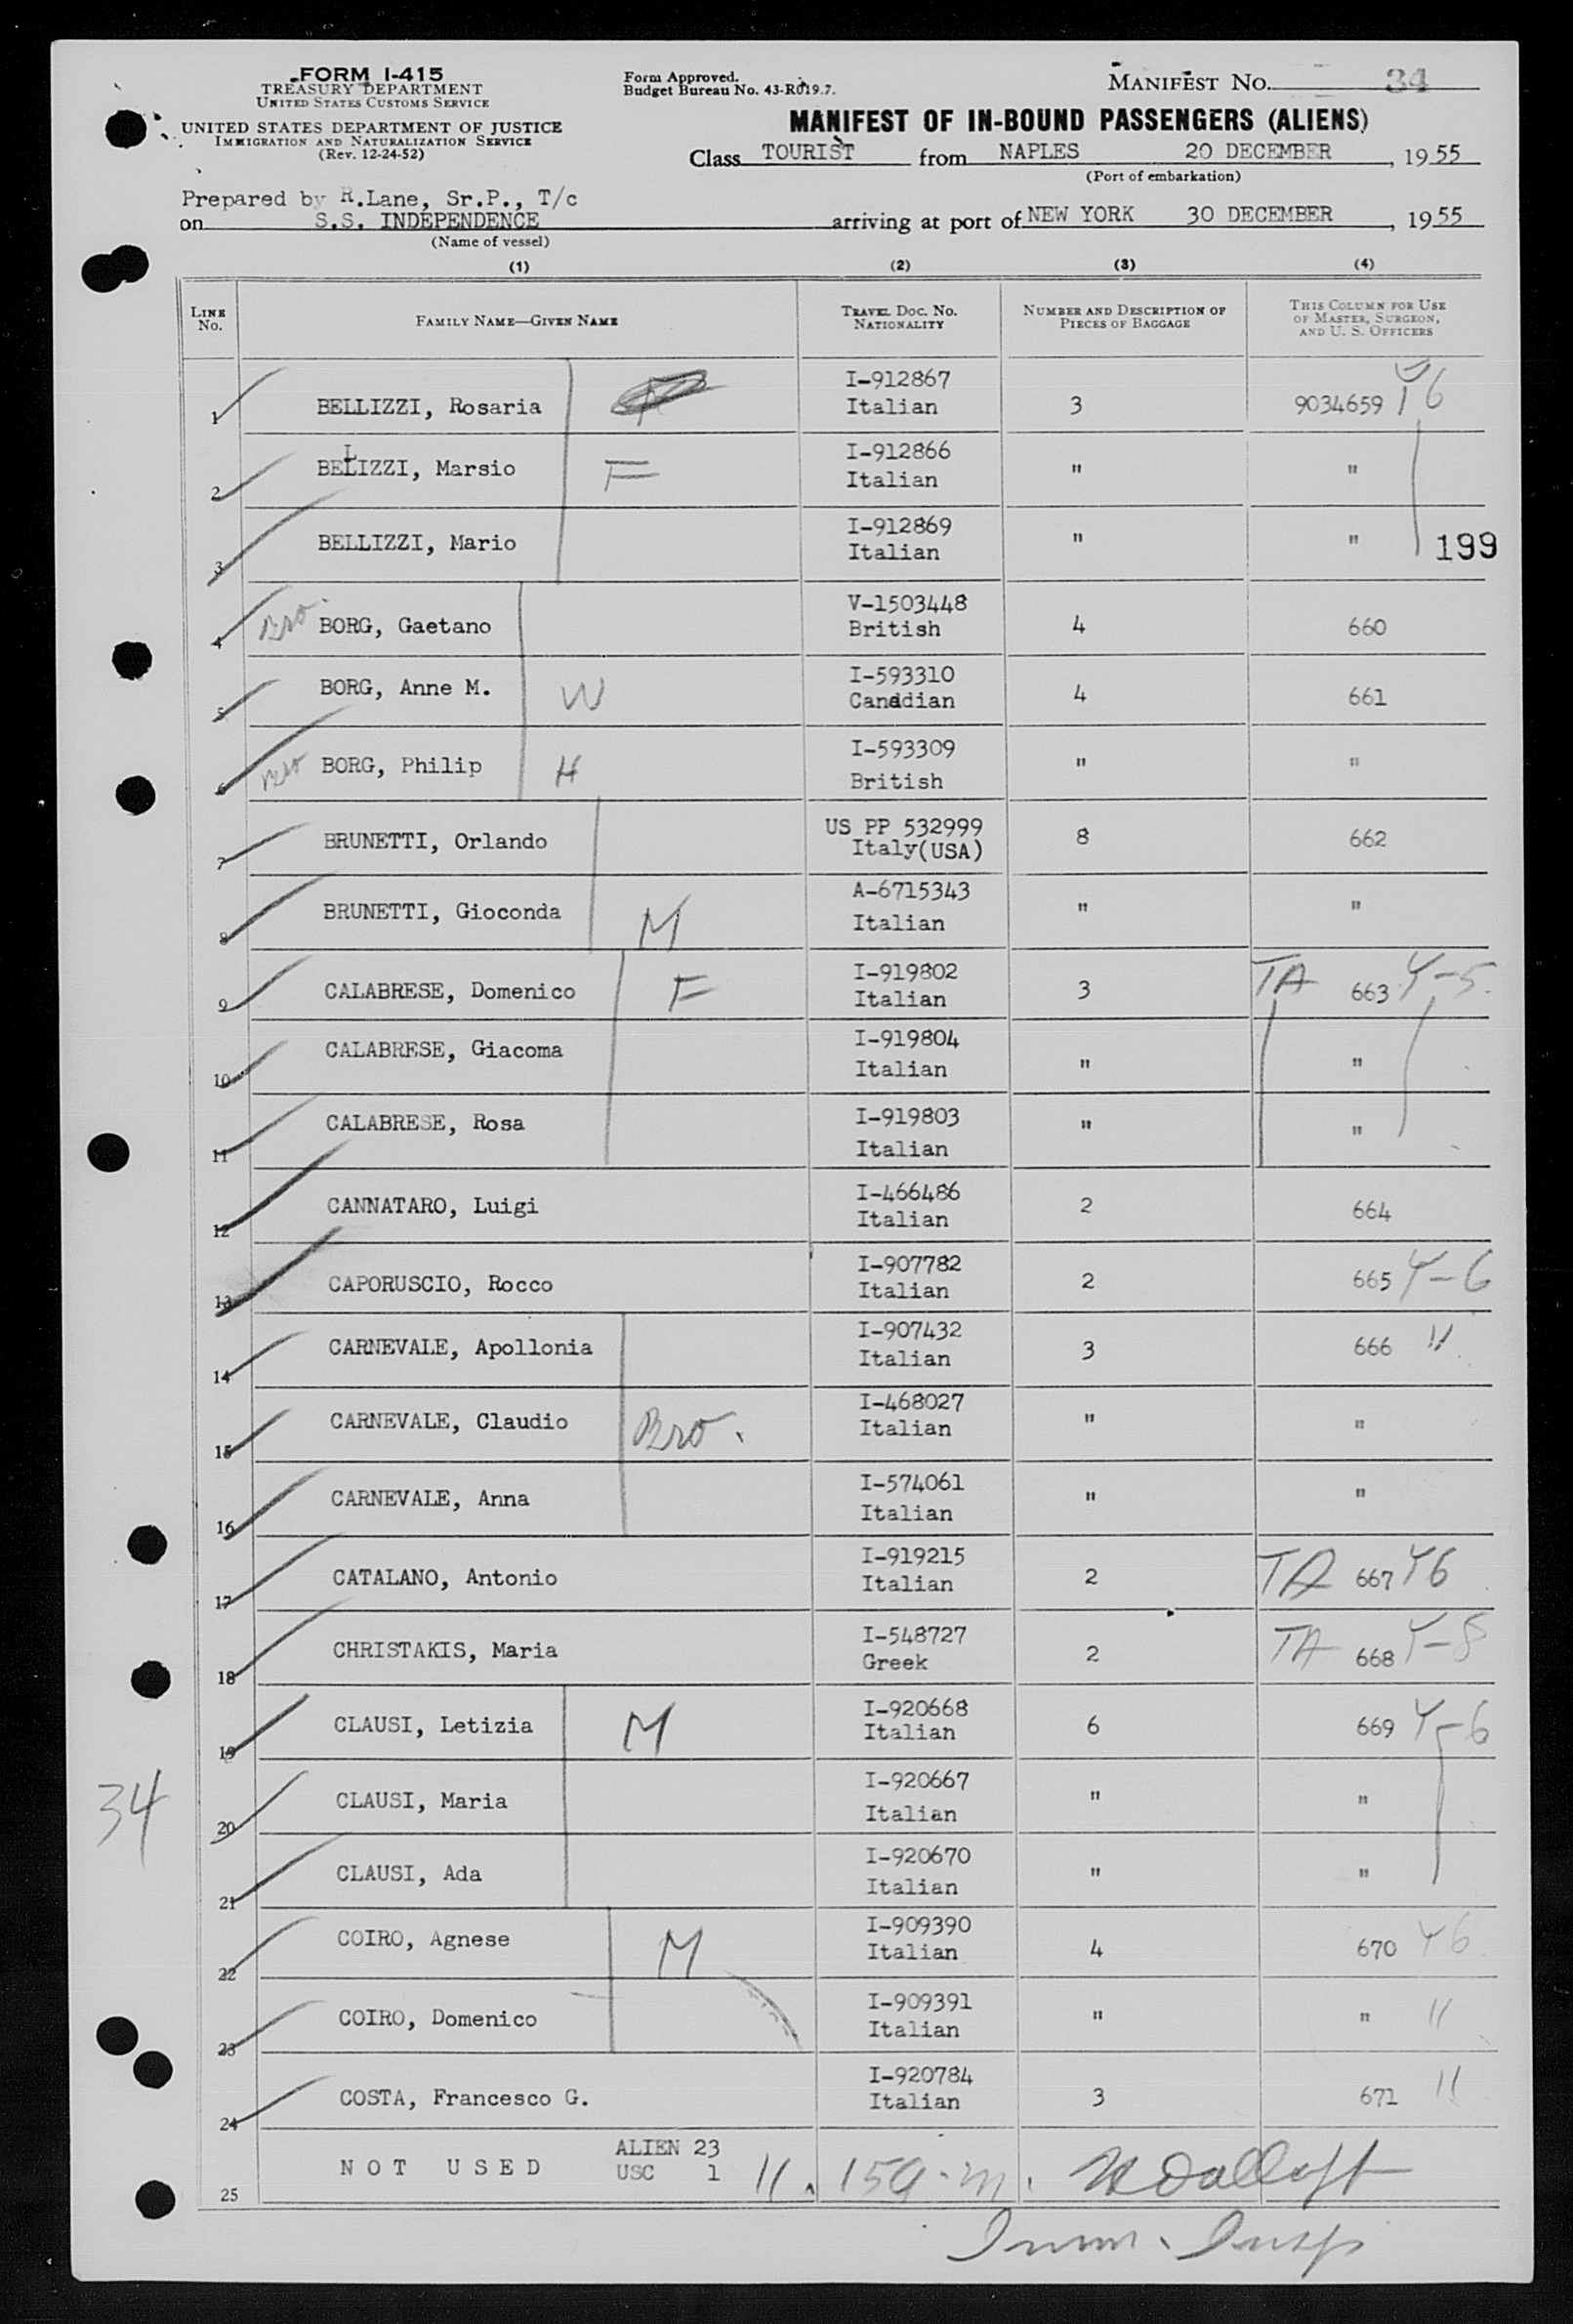 FORM I-415
TREASURY DEPARTMENT
UNITED STATES CUSTOMS SERVICE
UNITED STATES DEPARTMENT OF JUSTICE
IMMIGRATION AND NATURALIZATION SERVICE
(Rev. 12-24-52)
Form Approved.
Budget Bureau No. 43-R019.7.
MANIFEST NO. 34
MANIFEST OF IN-BOUND PASSENGERS (ALIENS)
Class TOURIST from NAPLES 20 DECEMBER, 1955
(Port of embarkation)
Prepared by R.Lane, Sr.P., T/c
on S.S. INDEPENDENCE arriving at port of NEW YORK 30 DECEMBER, 1955
(Name of vessel)
(1) (2) (3) (4)
LINE No. FAMILY NAME—GIVEN NAME TRAVEL DOC. NO. NATIONALITY NUMBER AND DESCRIPTION OF PIECES OF BAGGAGE THIS COLUMN FOR USE OF MASTER, SURGEON, AND U. S. OFFICERS
1 BELLIZZI, Rosaria I-912867 Italian 3 9034659 Y6
2 BELLIZZI, Marsio F I-912866 Italian " "
3 BELLIZZI, Mario I-912869 Italian " " 199
4 Bro. BORG, Gaetano V-1503448 British 4 660
5 BORG, Anne M. W I-593310 Canadian 4 661
6 Bro BORG, Philip H I-593309 British " "
7 BRUNETTI, Orlando US PP 532999 Italy(USA) 8 662
8 BRUNETTI, Gioconda M A-6715343 Italian " "
9 CALABRESE, Domenico F I-919802 Italian 3 TA 663 Y-5
10 CALABRESE, Giacoma I-919804 Italian " "
11 CALABRESE, Rosa I-919803 Italian " "
12 CANNATARO, Luigi I-466486 Italian 2 664
13 CAPORUSCIO, Rocco I-907782 Italian 2 665 Y-6
14 CARNEVALE, Apollonia I-907432 Italian 3 666 "
15 CARNEVALE, Claudio Bro. I-468027 Italian " "
16 CARNEVALE, Anna I-574061 Italian " "
17 CATALANO, Antonio I-919215 Italian 2 TA 667 Y6
18 CHRISTAKIS, Maria I-548727 Greek 2 TA 668 Y-8
19 CLAUSI, Letizia M I-920668 Italian 6 669 Y-6
20 CLAUSI, Maria I-920667 Italian " "
34
21 CLAUSI, Ada I-920670 Italian " "
22 COIRO, Agnese M I-909390 Italian 4 670 Y6
23 COIRO, Domenico I-909391 Italian " " "
24 COSTA, Francesco G. I-920784 Italian 3 671 "
25 NOT USED ALIEN 23
USC 1
Imm. Insp